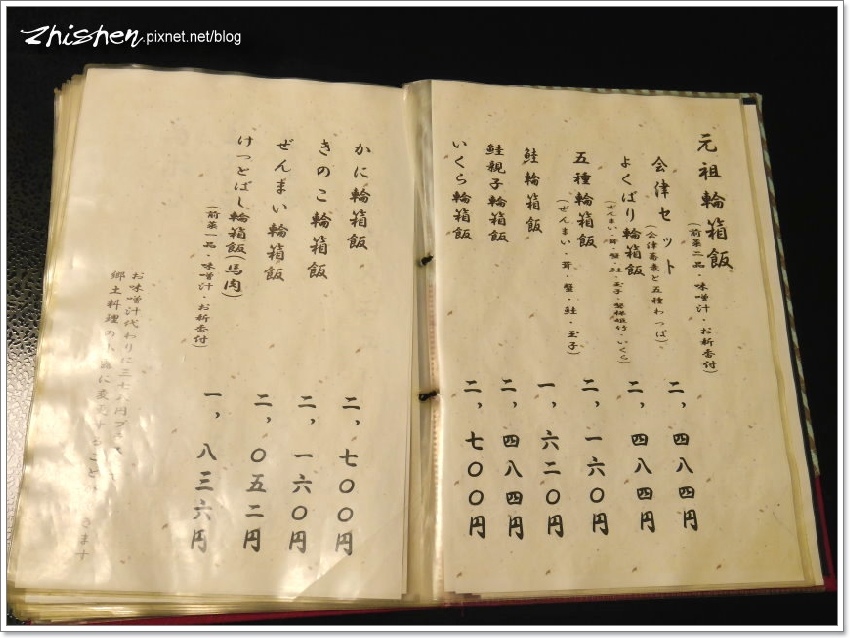 Zhishen.pixnet.net/blog
元祖輪箱飯
(前菜二品・味噌汁・お新香付)
会津セット
(会津蕎麦と五種わっぱ)
二、四八四円
よくばり輪箱飯
二、四八四円
五種輪箱飯
(ぜんまい・茸・蟹・鮭・玉子)
二、一六〇円
鮭輪箱飯
一、六二〇円
鮭親子輪箱飯
二、四八四円
いくら輪箱飯
二、七〇〇円
かに輪箱飯
二、七〇〇円
きのこ輪箱飯
二、一六〇円
ぜんまい輪箱飯
二、〇五二円
けっとばし輪箱飯(馬肉)
(前菜一品・味噌汁・お新香付)
一、八三六円
お味噌汁代わりに三七八円プラス
郷土料理の
に変更すること
ます